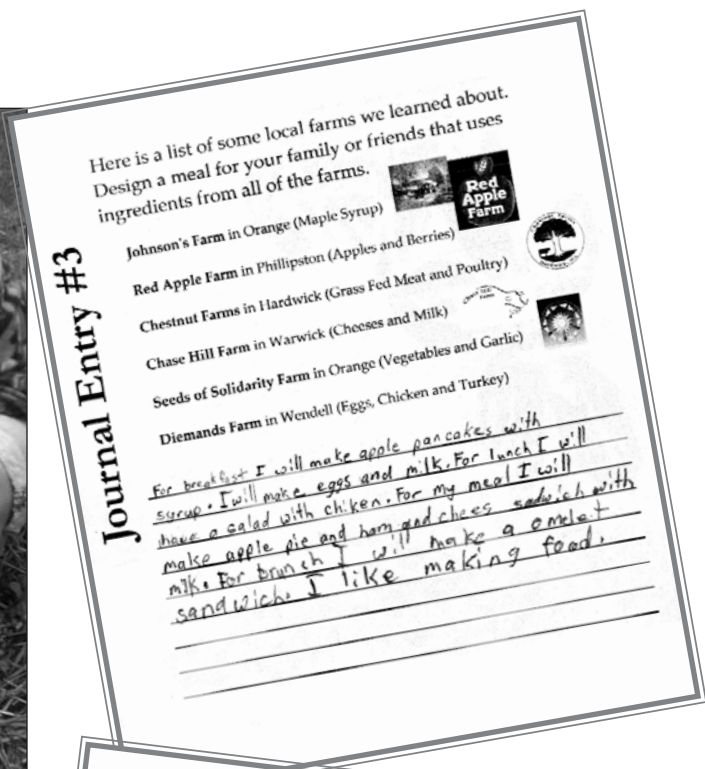 Journal Entry #3
Here is a list of some local farms we learned about.
Design a meal for your family or friends that uses
ingredients from all of the farms.
Johnson's Farm in Orange (Maple Syrup)
Red Apple Farm in Phillipston (Apples and Berries)
Chestnut Farms in Hardwick (Grass Fed Meat and Poultry)
Chase Hill Farm in Warwick (Cheeses and Milk)
Seeds of Solidarity Farm in Orange (Vegetables and Garlic)
Diemands Farm in Wendell (Eggs, Chicken and Turkey)
Red
Apple
Farm
For breakfast I will make apple pancakes with
syrup. I will make eggs and milk. For lunch I will
have a salad with chiken. For my meal I will
make apple pie and ham and chees sadwich with
milk. For brunch I will make a omelet
sandwich. I like making food.